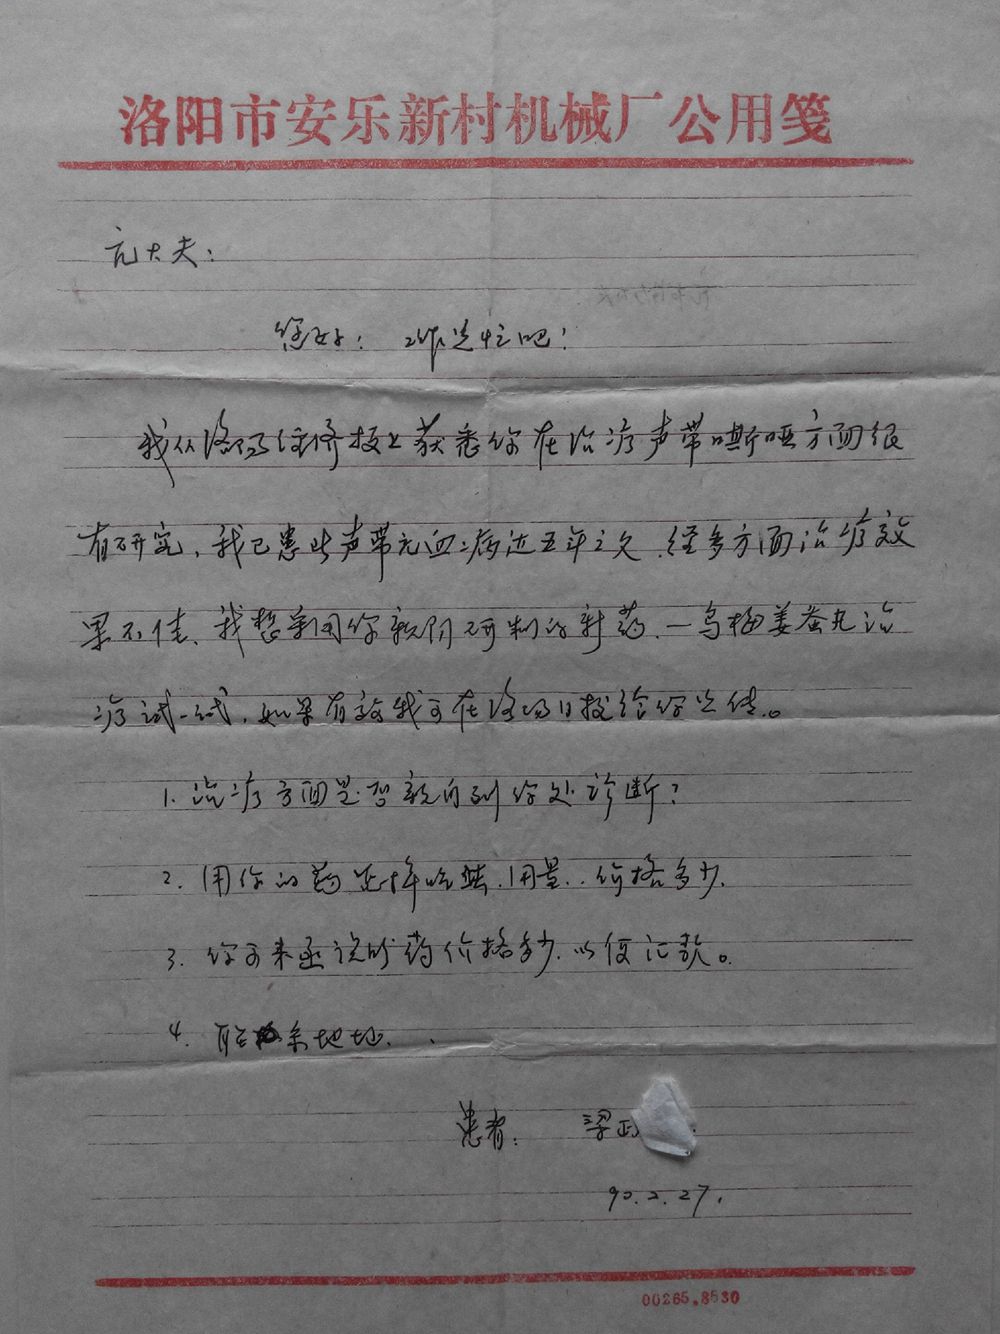 洛阳市安乐新村机械厂公用笺
亢大夫：
您好！工作选忙吧！
我从洛阳经济报上获悉你在治疗声带嘶哑方面很
有研究，我已患此声带充血病达五年之久，经多方面治疗效
果不佳，我想采用你新研制的新药，—乌梅姜蚕丸治
疗试一试，如果有效我可在洛阳日报给你宣传。
1. 治疗方面是否亲自到你处诊断？
2. 用你的药怎样吃法，用量，价格多少，
3. 你可来函说明药价格多少，以便汇款。
4. 联系地址．．
患者： 梁正
90.2.27.
00265.8530